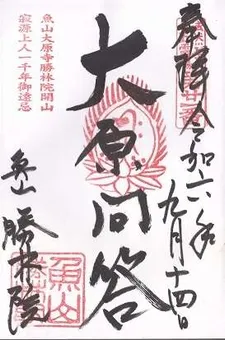 奉拝 令和六年九月十四日
大原問答
魚山大原寺勝林院開山
寂源上人一千年御遠忌
魚山 勝林院
魚山